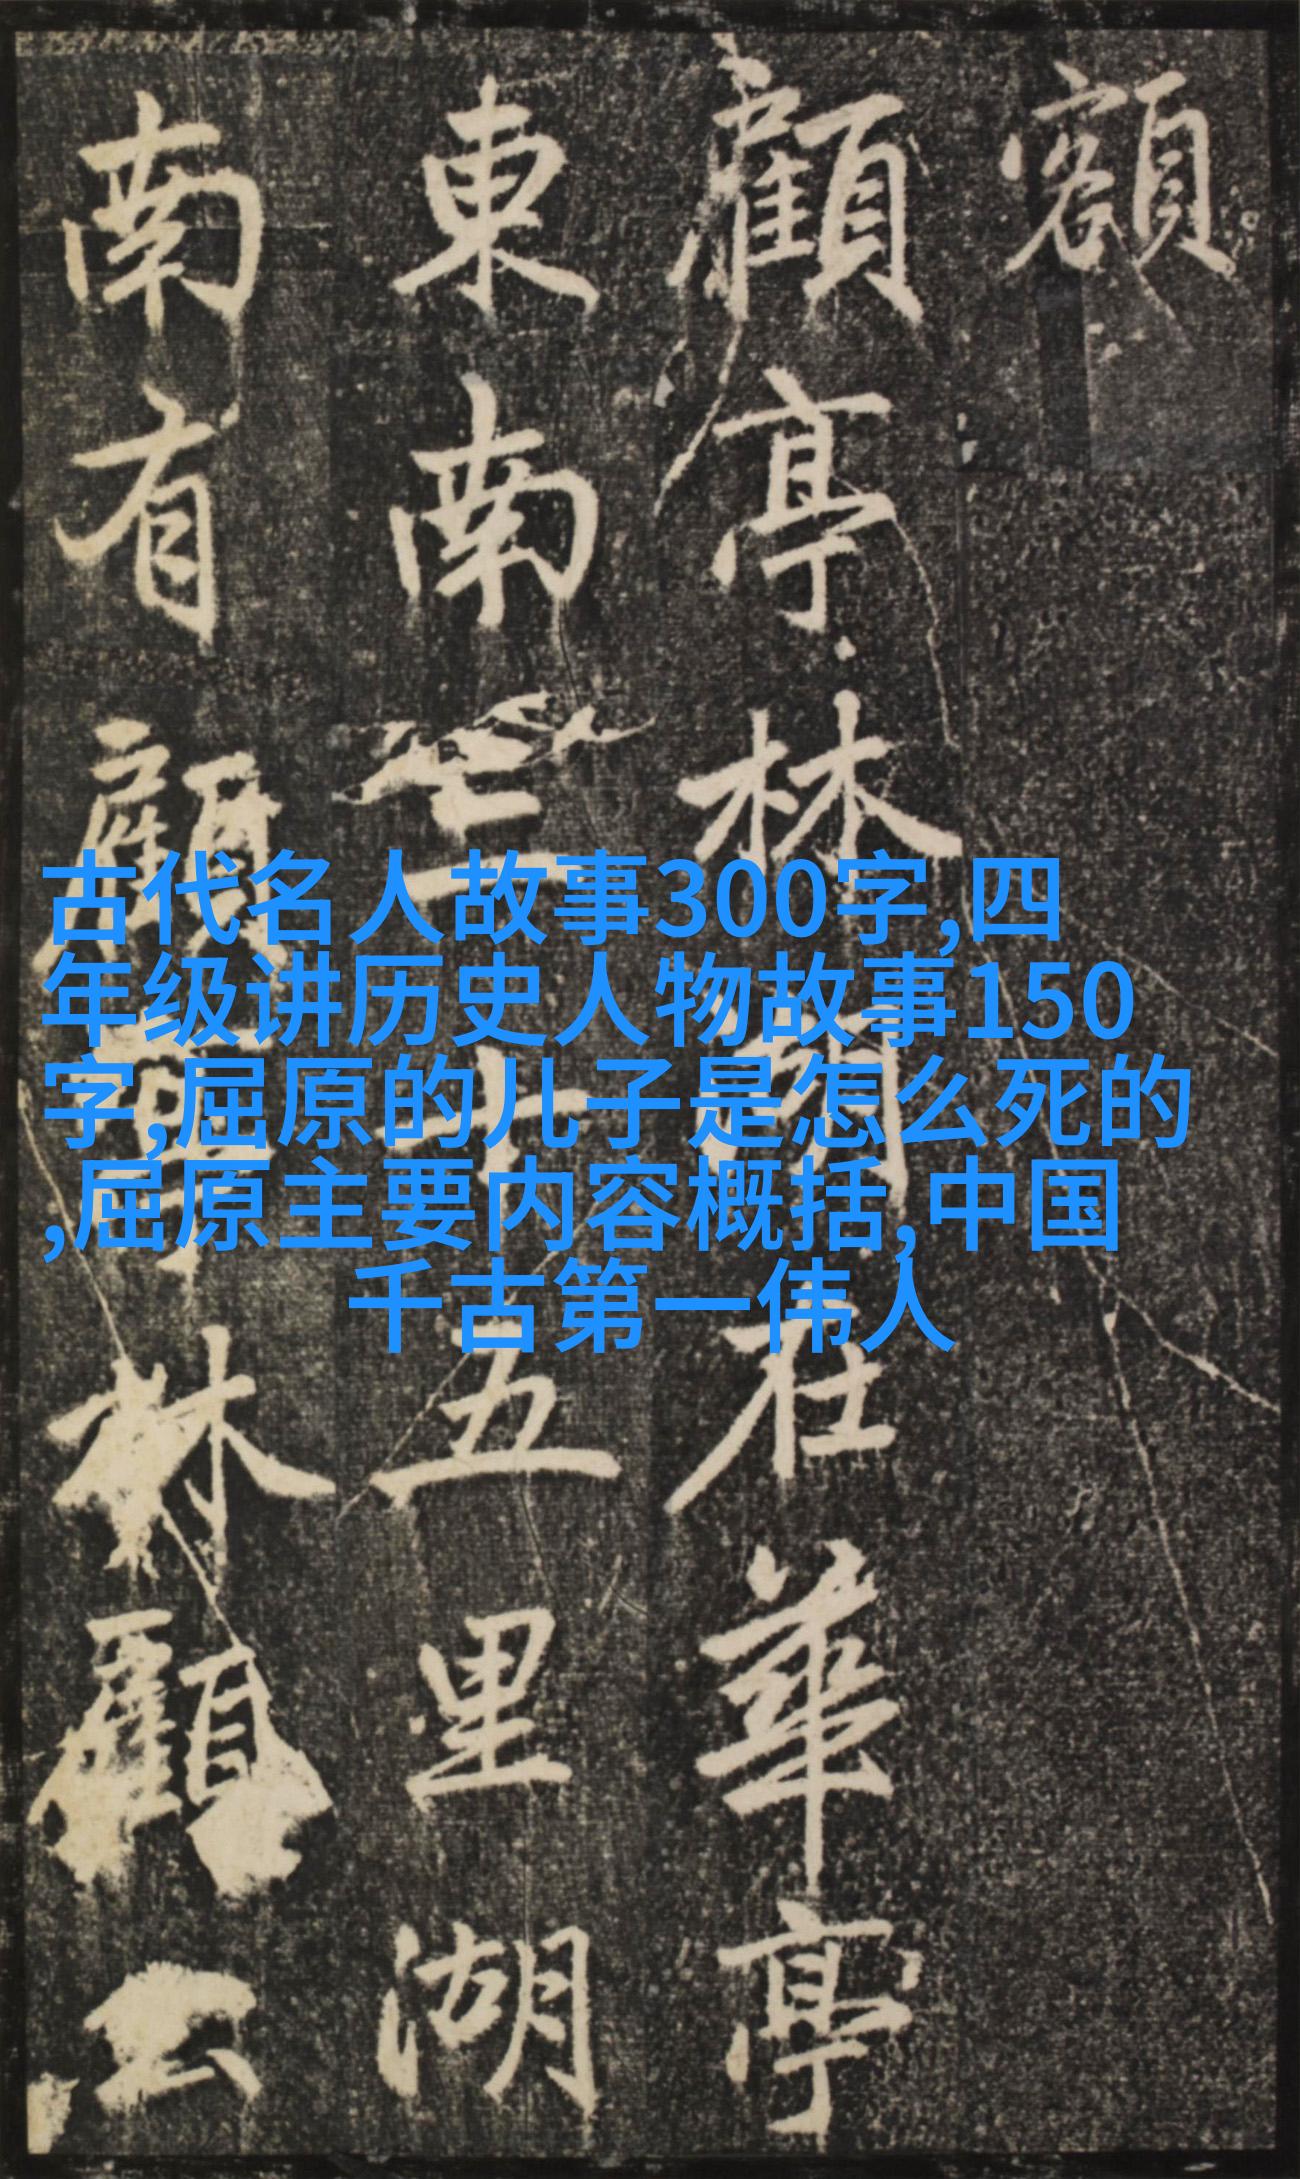 額
顧亭林湖在華亭
東南三十五里湖
南有顧野林顧公
古代名人故事300字,四
年级讲历史人物故事150
字,屈原的儿子是怎么死的
,屈原主要内容概括,中国
千古第一伟人